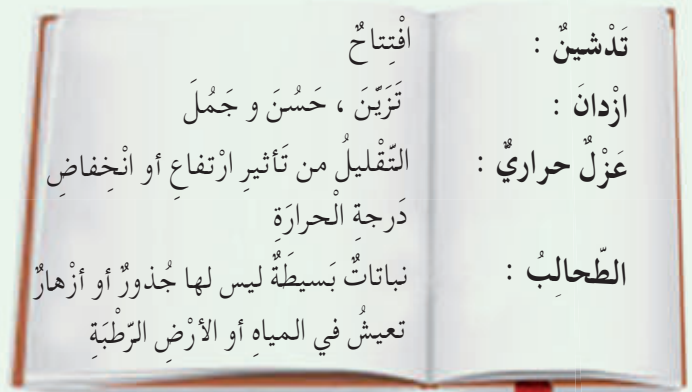 تَدْشينٌ : افْتِتاحٌ
ازْدانَ : تَزَيّنَ ، حَسُنَ و جَمُلَ
عَزْلٌ حراريٌّ : التّقْليلُ من تَأثيرِ ارْتفاعِ أو انْخِفاضِ
دَرجةِ الْحرارَةِ
الطّحالِبُ : نباتاتٌ بَسيطَةٌ ليس لها جُذورٌ أو أزْهارٌ
تعيشُ في المياهِ أو الأرْضِ الرّطْبَةِ